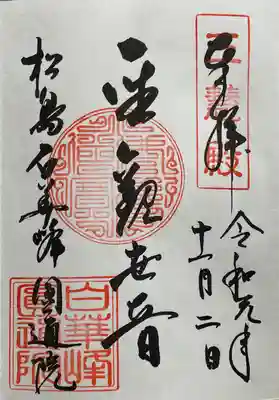 三慧殿
奉拝
令和元年
十一月二日
聖観世音
松島 白華峰 圓通院
白華峰
圓通院